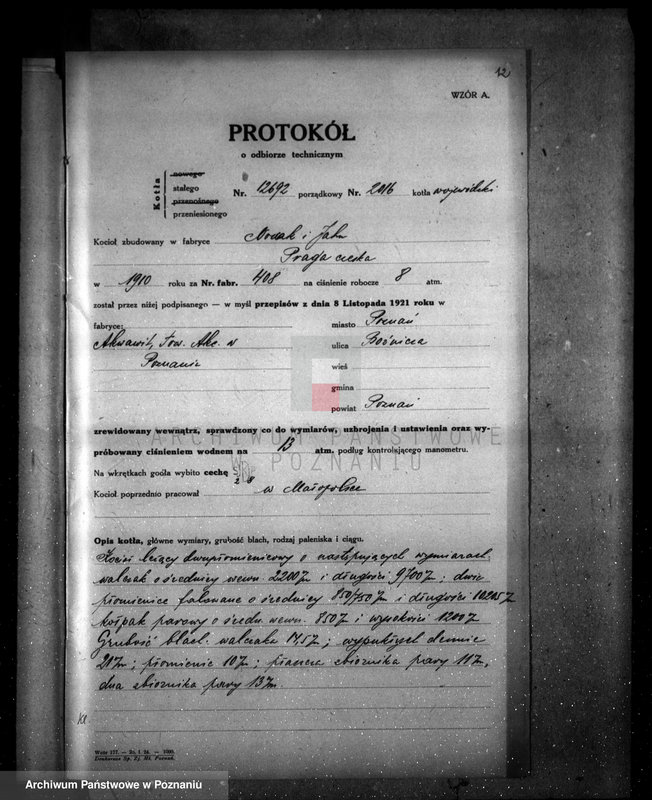 12
WZÓR A.
PROTOKÓŁ
o odbiorze technicznym
Kotła
nowego
stałego
przenośnego
przeniesionego
Nr. 12692 porządkowy Nr. 2016 kotła wojewódzki
Kocioł zbudowany w fabryce Novak i Jahn
Praga czeska
w 1910 roku za Nr. fabr. 408 na ciśnienie robocze 8 atm.
został przez niżej podpisanego — w myśl przepisów z dnia 8 Listopada 1921 roku w
fabryce: miasto Poznań
Akwawit, Tow. Akc. w ulica Bóżnicza
Poznaniu wieś
gmina
powiat Poznań
zrewidowany wewnątrz, sprawdzony co do wymiarów, uzbrojenia i ustawienia oraz wy-
próbowany ciśnieniem wodnem na 13 atm. podług kontrolującego manometru.
Na wkrętkach godła wybito cechę
Kocioł poprzednio pracował w Małopolsce
Opis kotła, główne wymiary, grubość blach, rodzaj paleniska i ciągu.
Kocioł leżący dwupłomienicowy o następujących wymiarach
walczak o średnicy wewn. 2200 i długości 9700; dwie
płomienice falowane o średnicy 850/750 i długości
kołpak parowy o średn. wewn. 850 i wysokości 1200
Grubość blach. walczaka 17,5; wypukłych dennic
20; płomienic 10; płaszcza zbiornika pary 11,
dna zbiornika pary 13
Wzór 177. — 20. I. 24. — 1000.
Drukarnia Sp. Zj. Mł. Poznań.
ARCHIWUM PAŃSTWOWE
W POZNANIU
Archiwum Państwowe w Poznaniu